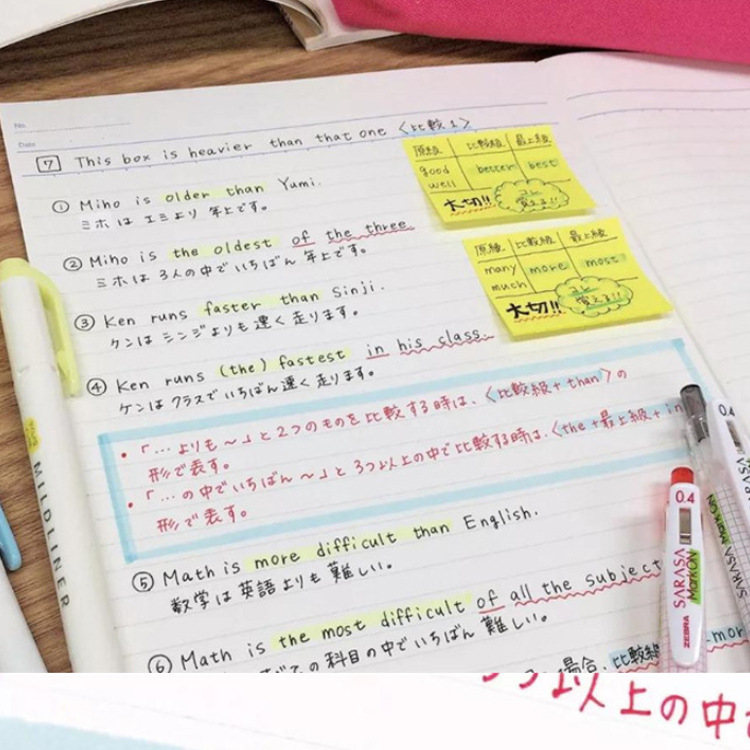 No.
Date
7 This box is heavier than that one 〈比較1〉
① Miho is older than Yumi.
ミホは エミより 年上です。
② Miho is the oldest of the three
ミホは 3人の中でいちばん 年上です。
③ Ken runs faster than Sinji.
ケンは シンジよりも速く走ります。
④ Ken runs (the) fastest in his class.
ケンは クラスでいちばん速く走ります。
原級 比較級 最上級
good better best
well
大切!! コレ
覚える!!
原級 比較級 最上級
many more most
much
大切!! コレ
覚える!!
・「… よりも ~」と2つのものを比較する時は、〈比較級+than〉の
形で表す。
・「… の中でいちばん ~」と 3つ以上の中で比較する時は、〈the+最上級+in
形で表す。
⑤ Math is more difficult than English.
数学は 英語よりも 難しい。
⑥ Math is the most difficult of all the subject
ての科目の中でいちばん 難しい。
場合、比較級 mor
MILDLINER
0.4
SARASA
MarkON
ZEBRA
0.4
SARASA
MarkON
0.4
以上の中